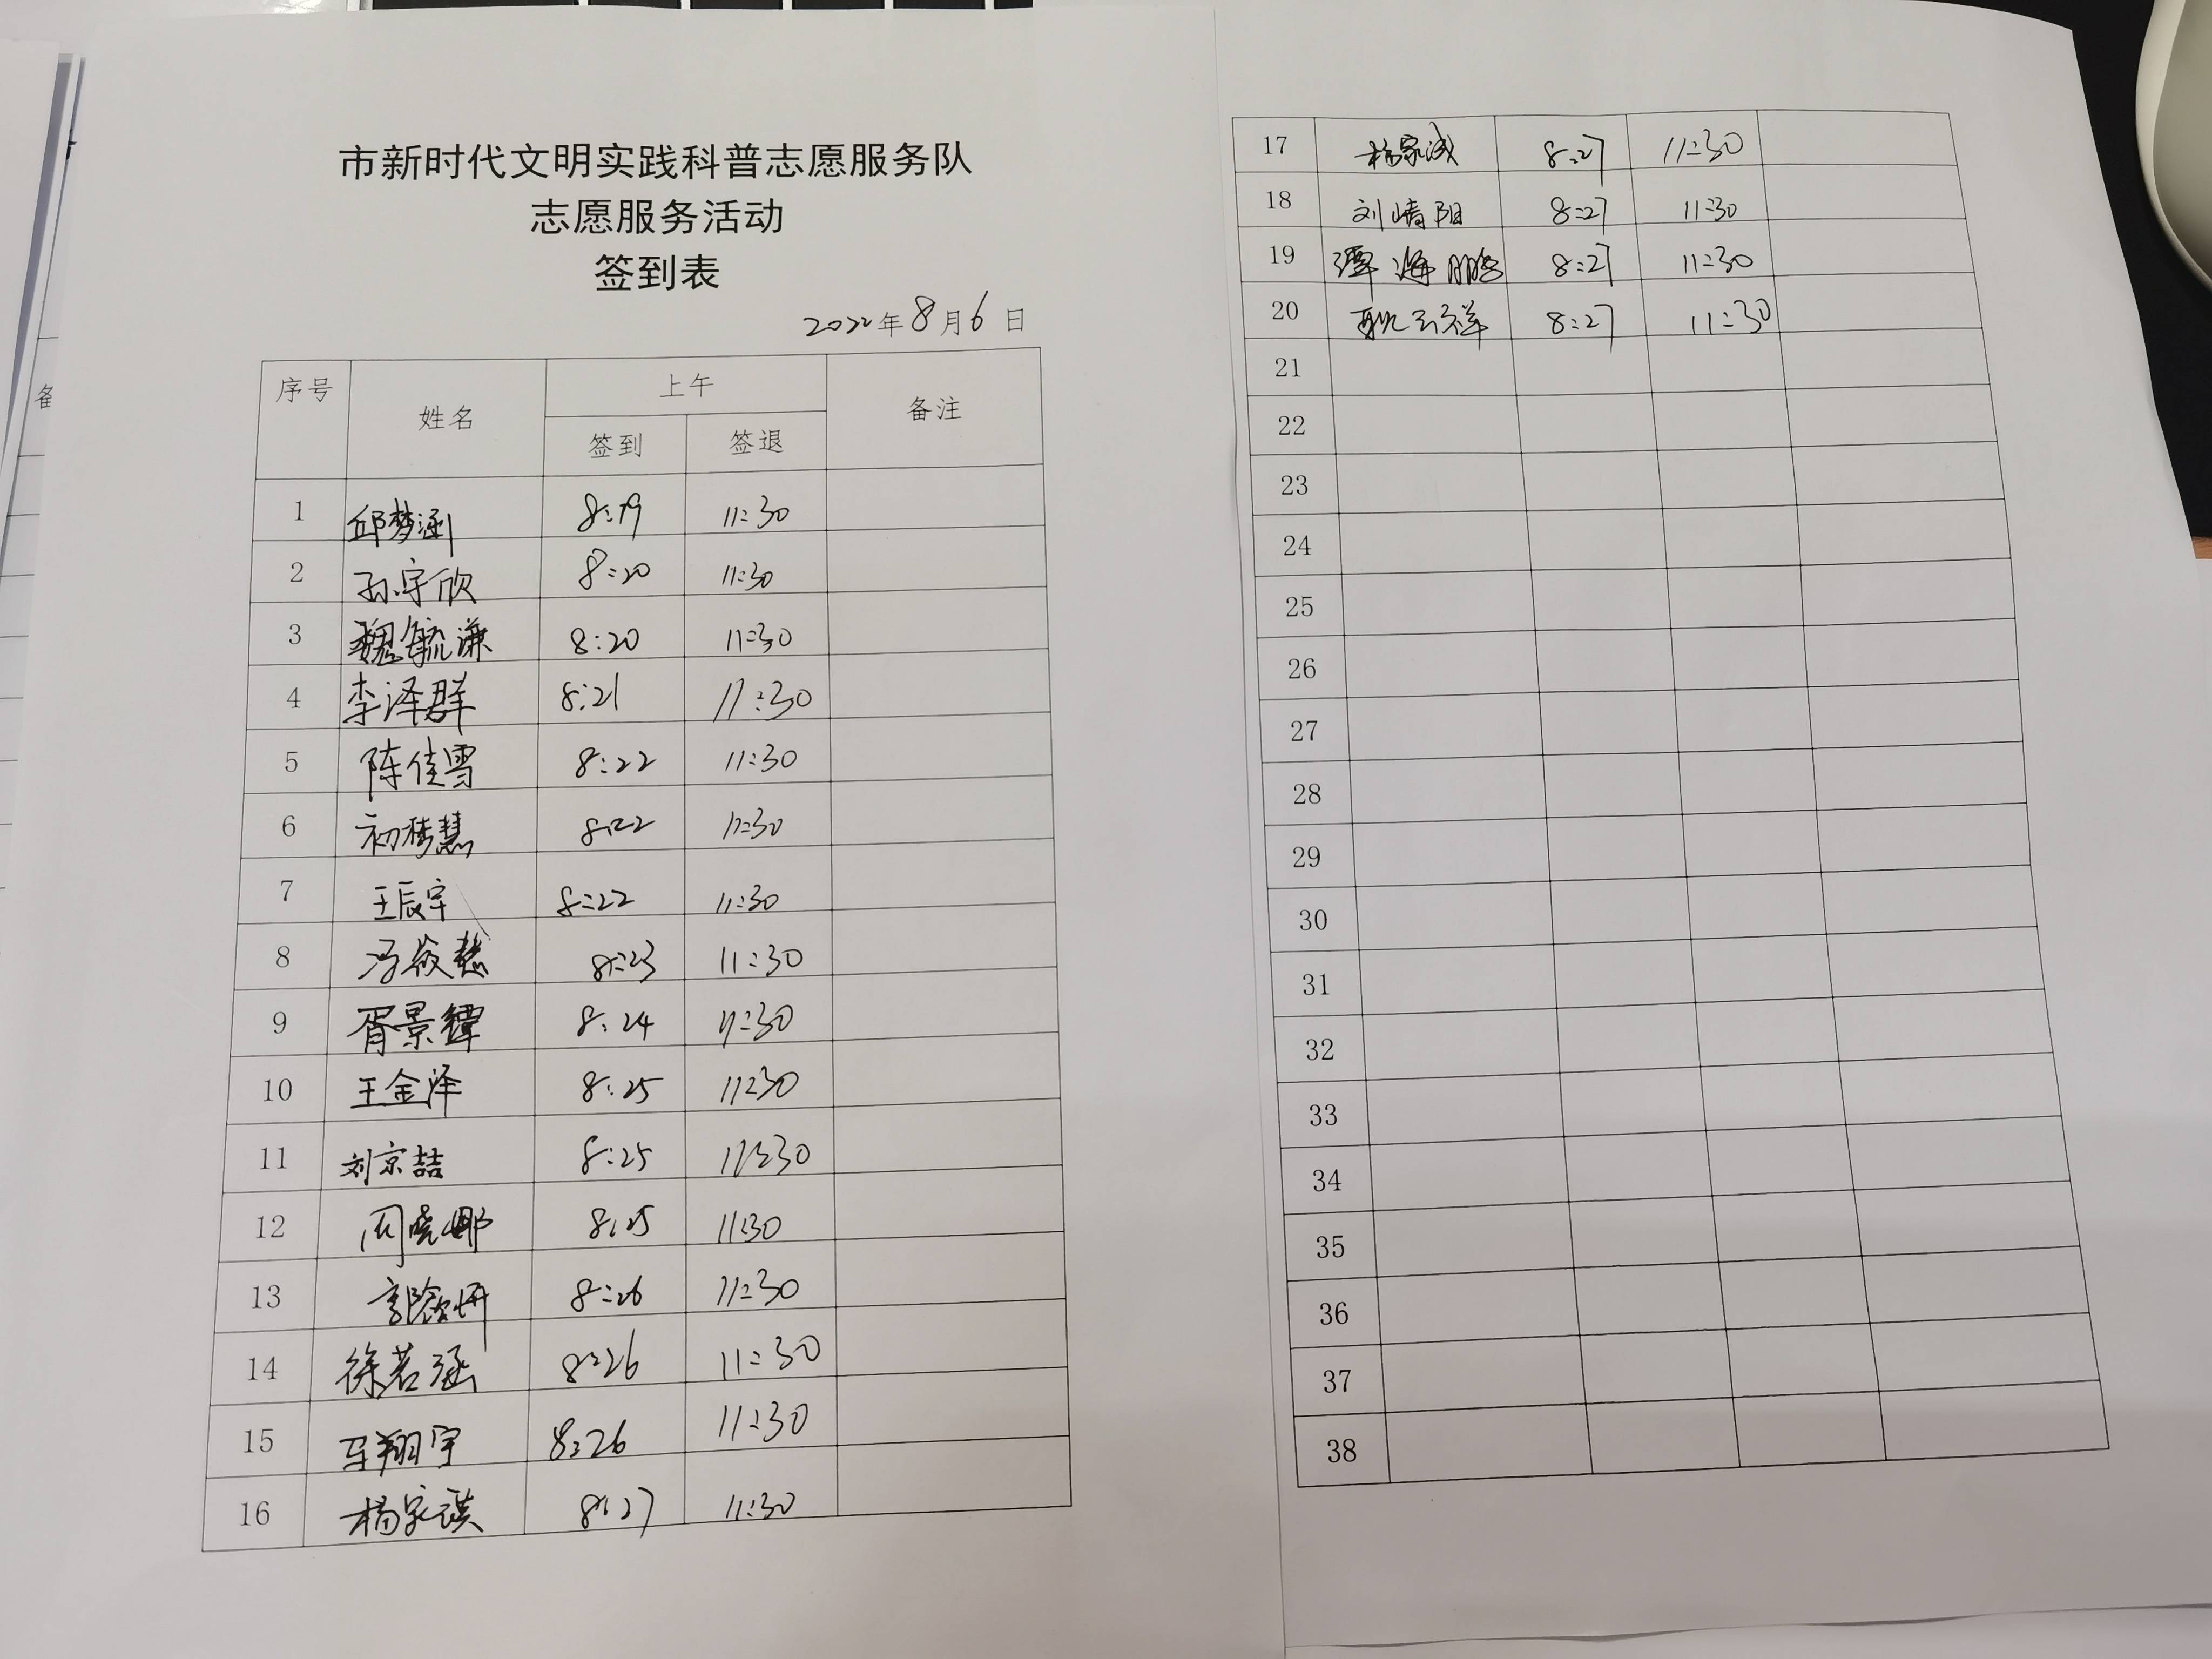 市新时代文明实践科普志愿服务队
志愿服务活动
签到表
2022年8月6日
序号 姓名 上午 备注
签到 签退
1 邱梦涵 8:19 11:30
2 孙宇欣 8:20 11:30
3 魏毓谦 8:20 11:30
4 李泽群 8:21 11:30
5 陈佳雪 8:22 11:30
6 初梦慧 8:22 11:30
7 王辰宇 8:22 11:30
8 冯 慧 8:23 11:30
9 胥景 8:24 11:30
10 王金泽 8:25 11:30
11 刘京喆 8:25 11:30
12 周晓娜 8:25 11:30
13 郭 妍 8:26 11:30
14 徐若涵 8:26 11:30
15 马翔宇 8:26 11:30
16 杨家琪 8:27 11:30
17 杨家诚 8:27 11:30
18 刘晴阳 8:27 11:30
19 谭海鹏 8:27 11:30
20 耿云祥 8:27 11:30
21
22
23
24
25
26
27
28
29
30
31
32
33
34
35
36
37
38
备